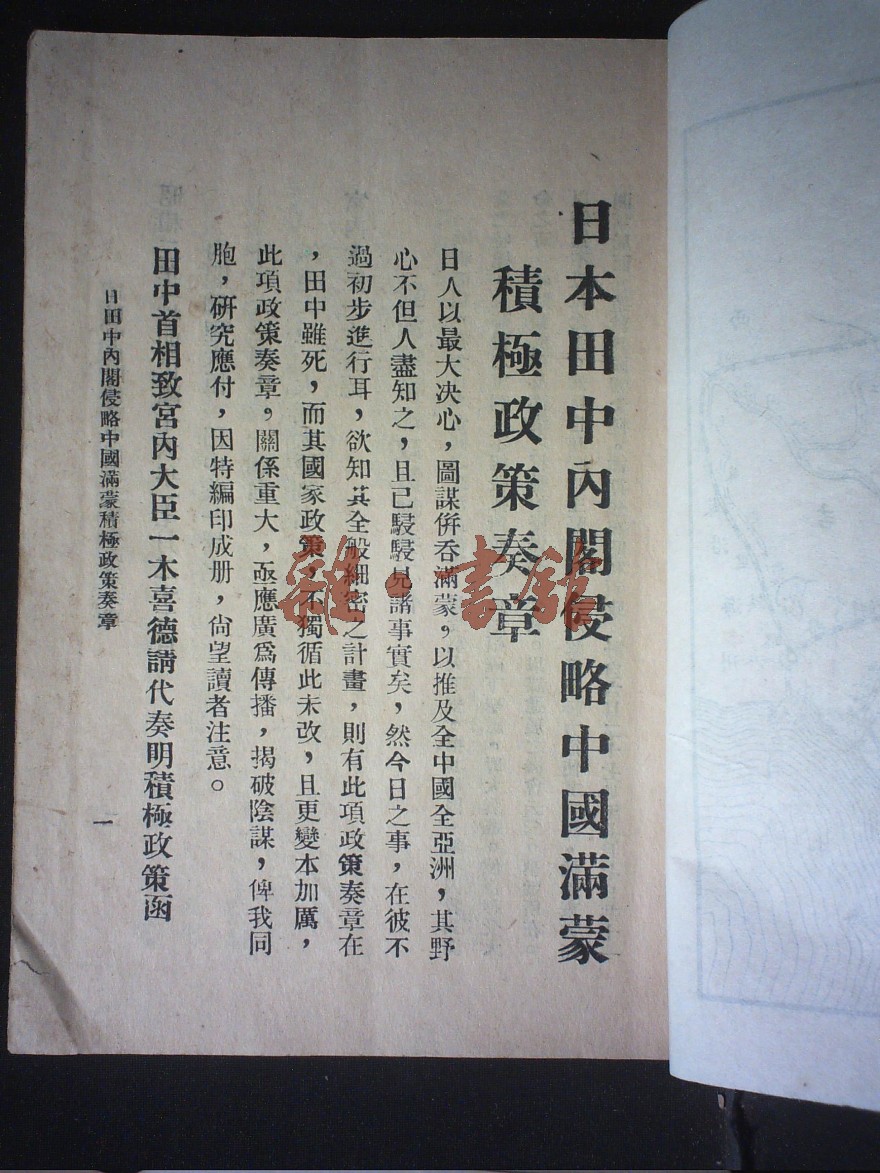 日本田中內閣侵略中國滿蒙
積極政策奏章
日人以最大決心，圖謀併吞滿蒙，以推及全中國全亞洲，其野
心不但人盡知之，且已駸駸見諸事實矣，然今日之事，在彼不
過初步進行耳，欲知其全般細密之計畫，則有此項政策奏章在
，田中雖死，而其國家政策，不獨循此未改，且更變本加厲，
此項政策奏章，關係重大，亟應廣爲傳播，揭破陰謀，俾我同
胞，研究應付，因特編印成册，尙望讀者注意。
田中首相致宮內大臣一木喜德請代奏明積極政策函
日田中內閣侵略中國滿蒙積極政策奏章
一
雜·書館